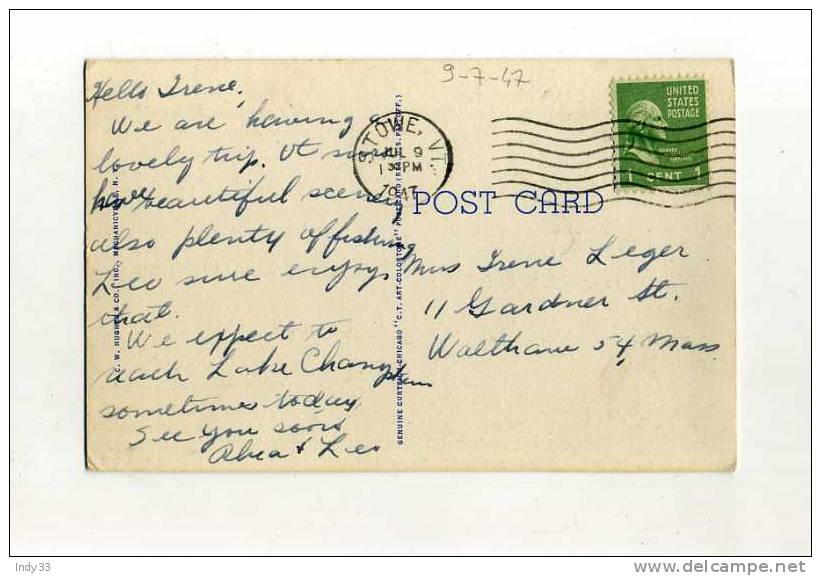 9-7-47
Hello Irene,
We are having a
lovely trip. Vt sure
have beautiful scenery
also plenty of fishing
Leo sure enjoys
that.
We expect to
reach Lake Champlain
sometimes today
See you soon
& Leo
STOWE, VT.
JUL 9
PM
1947
UNITED
STATES
POSTAGE
1 CENT 1
POST CARD
Miss Irene Leger
11 Gardner St.
Waltham 54, Mass
C. W. HUGHES & CO., INC., MECHANICVILLE, N. Y.
GENUINE CURTEICH-CHICAGO "C.T. ART-COLORTONE" POST CARD (REG. U.S. PAT. OFF.)
Indy33
www.delcampe.net